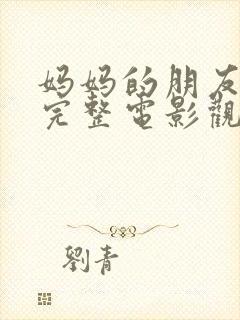 妈妈的朋友
完整電影觀
劉青